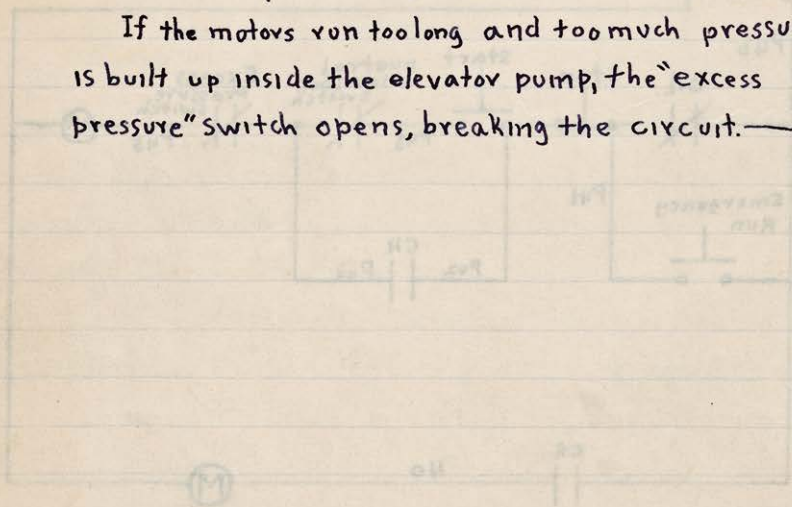 If the motors run too long and too much pressu
is built up inside the elevator pump, the "excess
pressure" switch opens, breaking the circuit.—
Emergency
Run